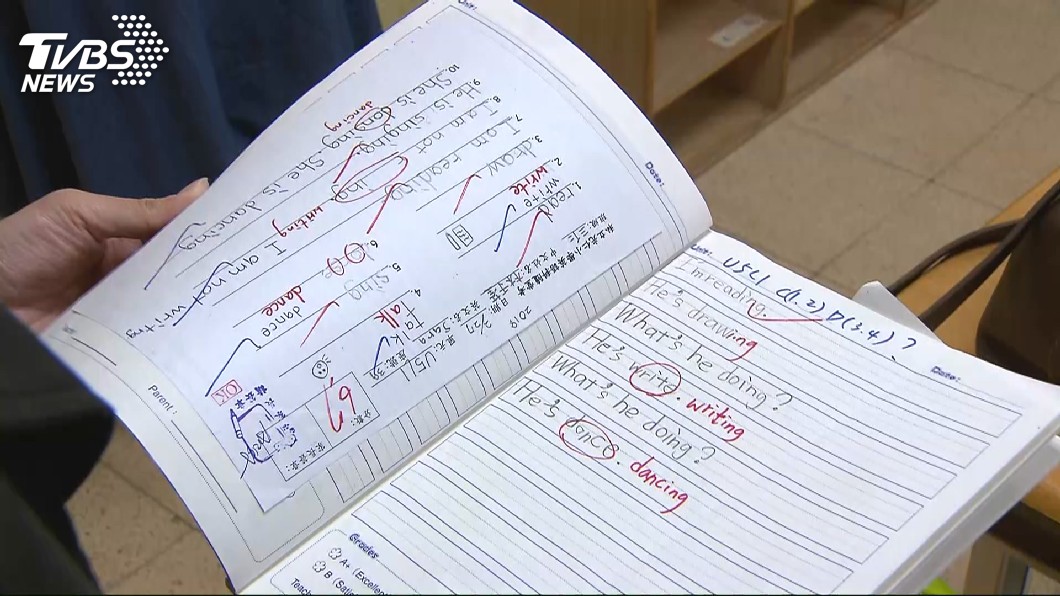 TVBS
NEWS
Date:
2019
U5L1
1. read
2. write write
write
3. draw
4. Talk
Talk
5. sing
dance
dance
7. I am reading
8. I am not writing I am not writing
9. He is singing.
10. She is donging She is dancing
dancing
OK
67
Parent:
Date:
U5L1 C(1.2) D(3.4)?
I'm reading.
He's drawing
What's he doing?
He's write. writing
What's he doing?
He's dance. dancing
Date:
Grades
A+ (Excellen
B (Satis
Teach